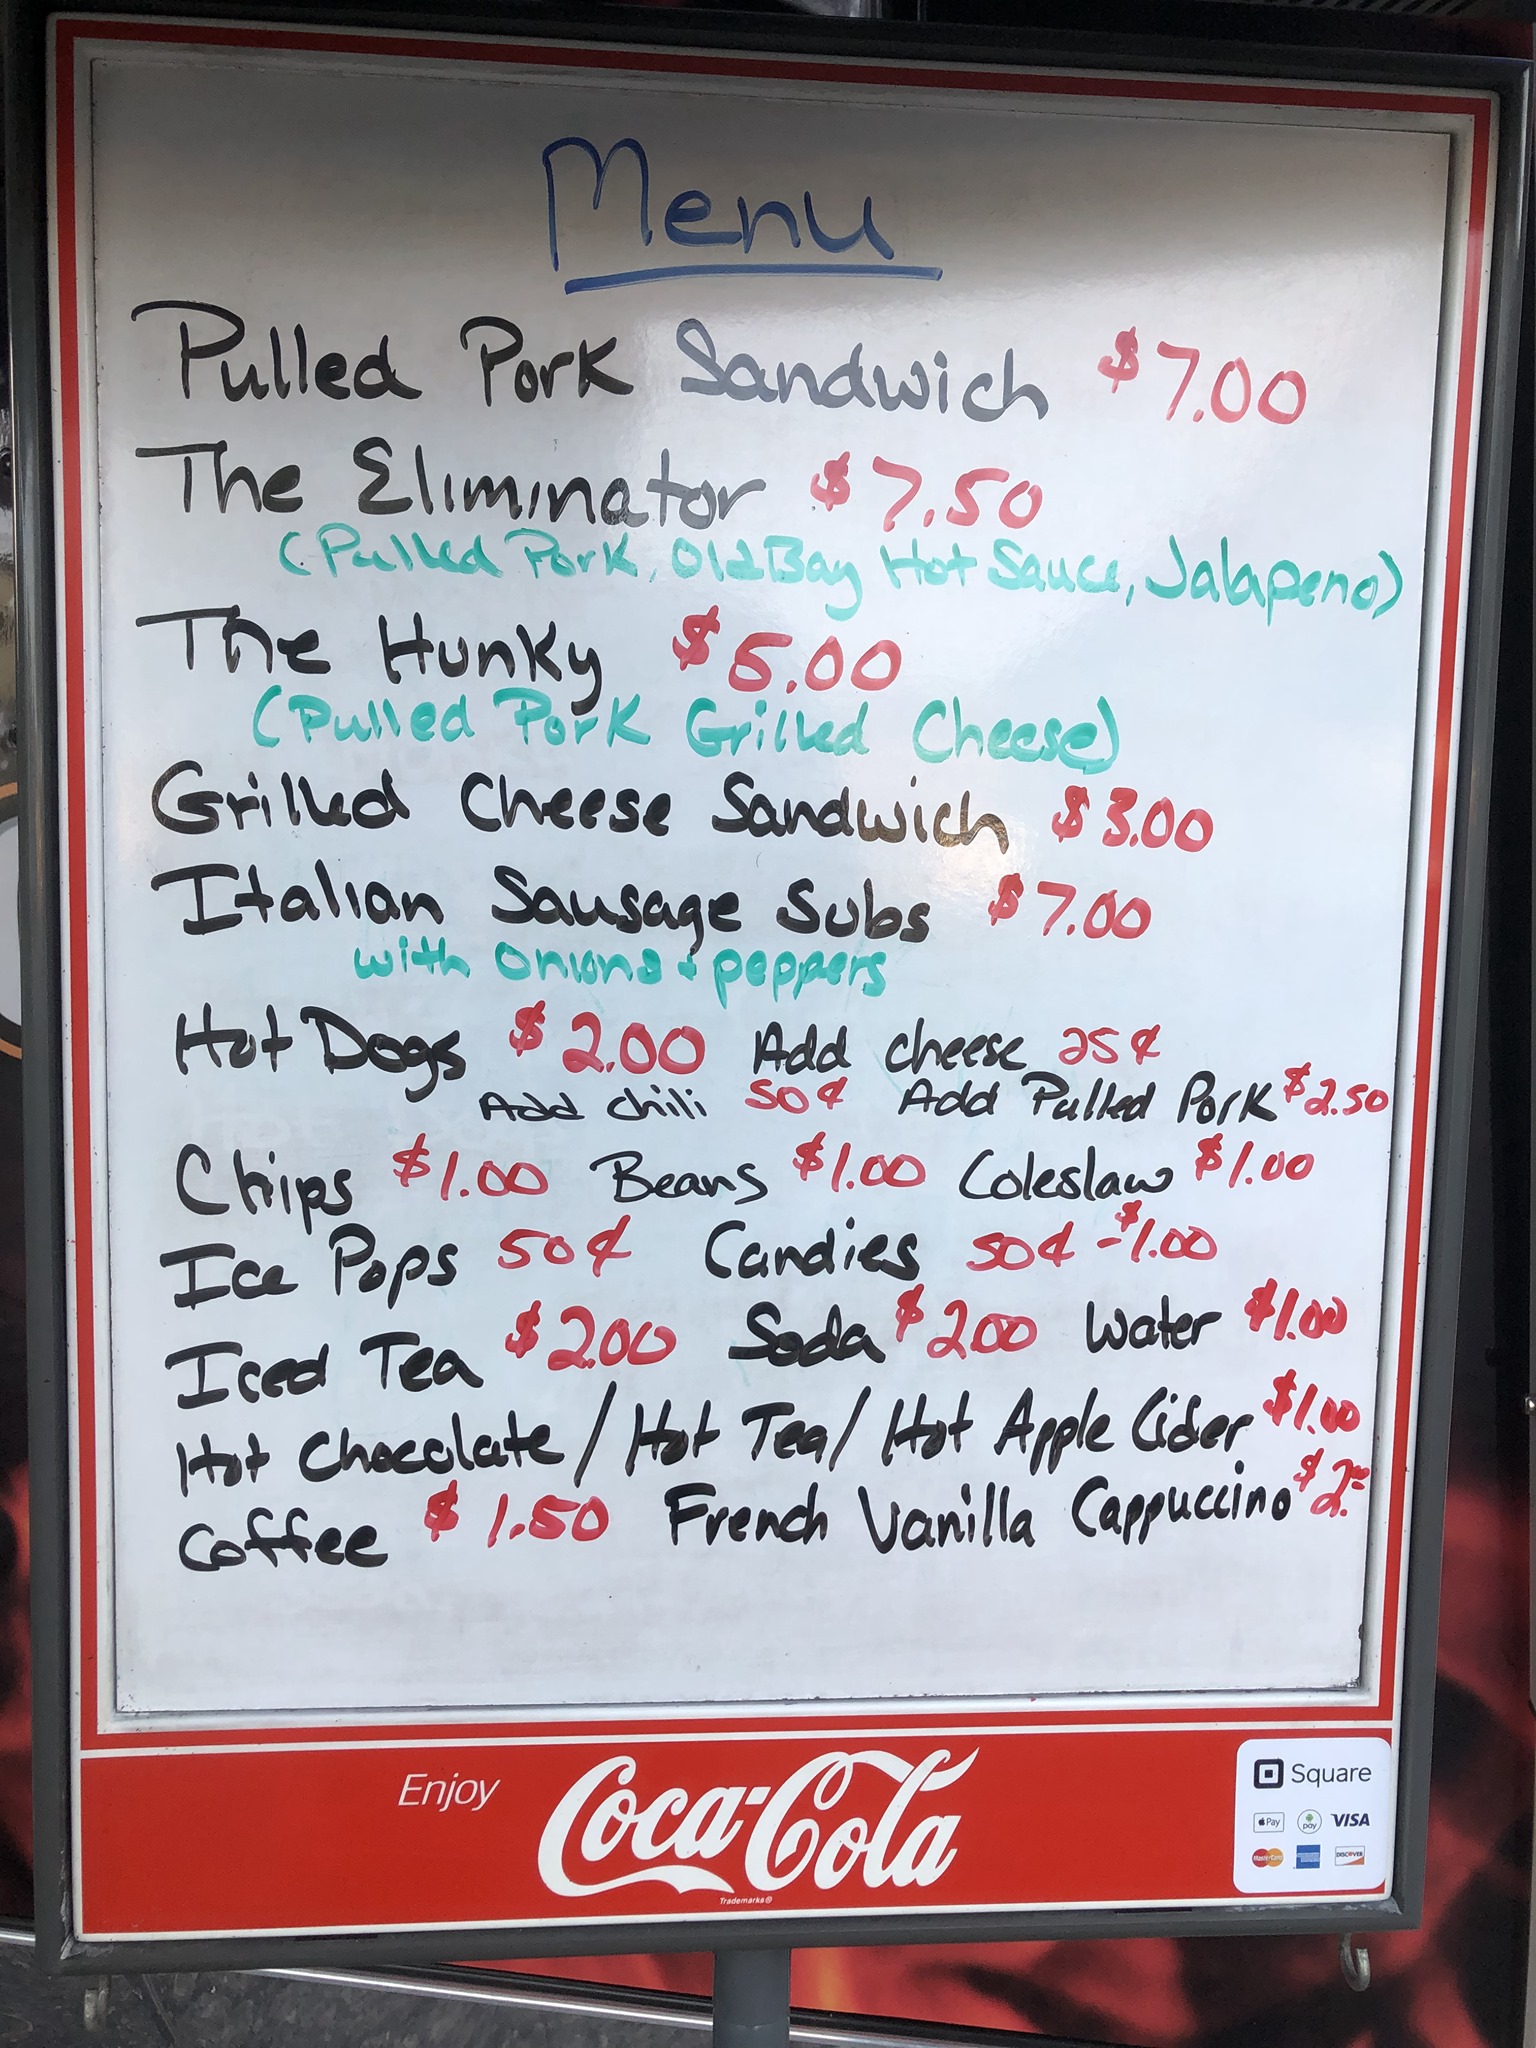 Menu
Pulled Pork Sandwich $7.00
The Eliminator $7.50
(Pulled Pork, Old Bay Hot Sauce, Jalapeno)
The Hunky $5.00
(Pulled Pork Grilled Cheese)
Grilled Cheese Sandwich $3.00
Italian Sausage Subs $7.00
with onions + peppers
Hot Dogs $2.00 Add cheese 25¢
Add chili 50¢ Add Pulled Pork $2.50
Chips $1.00 Beans $1.00 Coleslaw $1.00
Ice Pops 50¢ Candies 50¢-$1.00
Iced Tea $2.00 Soda $2.00 Water $1.00
Hot Chocolate / Hot Tea / Hot Apple Cider $1.00
Coffee $1.50 French Vanilla Cappuccino $2.00
Enjoy Coca-Cola
Trademarks®
Square
Pay pay VISA
MasterCard DISCOVER